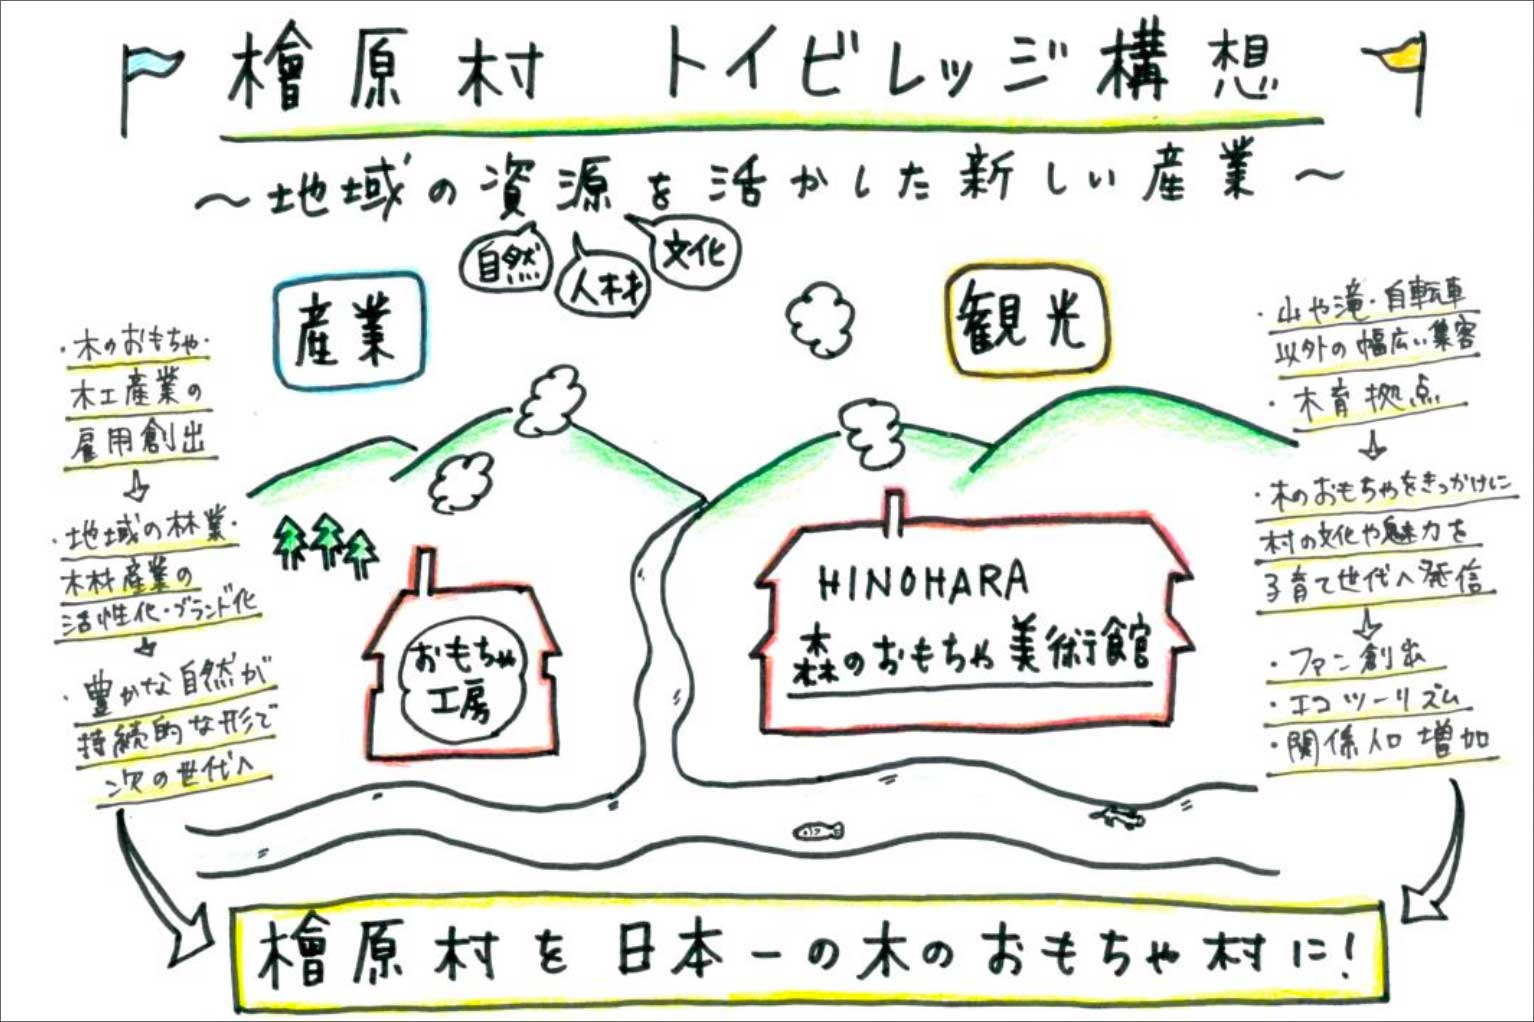 檜原村 トイビレッジ構想
～地域の資源を活かした新しい産業～
自然
人材
文化
産業
・木のおもちゃ・
木工産業の
雇用創出
・地域の林業・
木材産業の
活性化・ブランド化
・豊かな自然が
持続的な形で
次の世代へ
おもちゃ
工房
観光
・山や滝・自転車
以外の幅広い集客
・木育拠点
・木のおもちゃをきっかけに
村の文化や魅力を
子育て世代へ発信
・ファン創出
・エコツーリズム
・関係人口増加
HINOHARA
森のおもちゃ美術館
檜原村を日本一の木のおもちゃ村に!